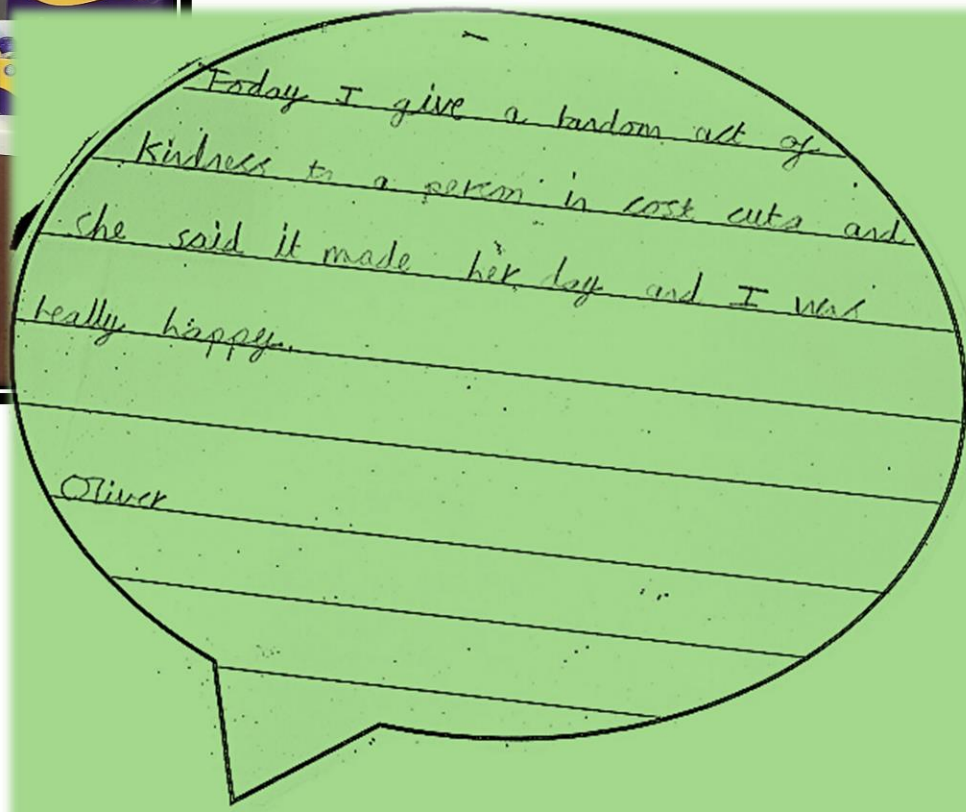 Today I give a random act of
kindness to a person in cost cuta and
she said it made her day and I was
really happy.
Oliver